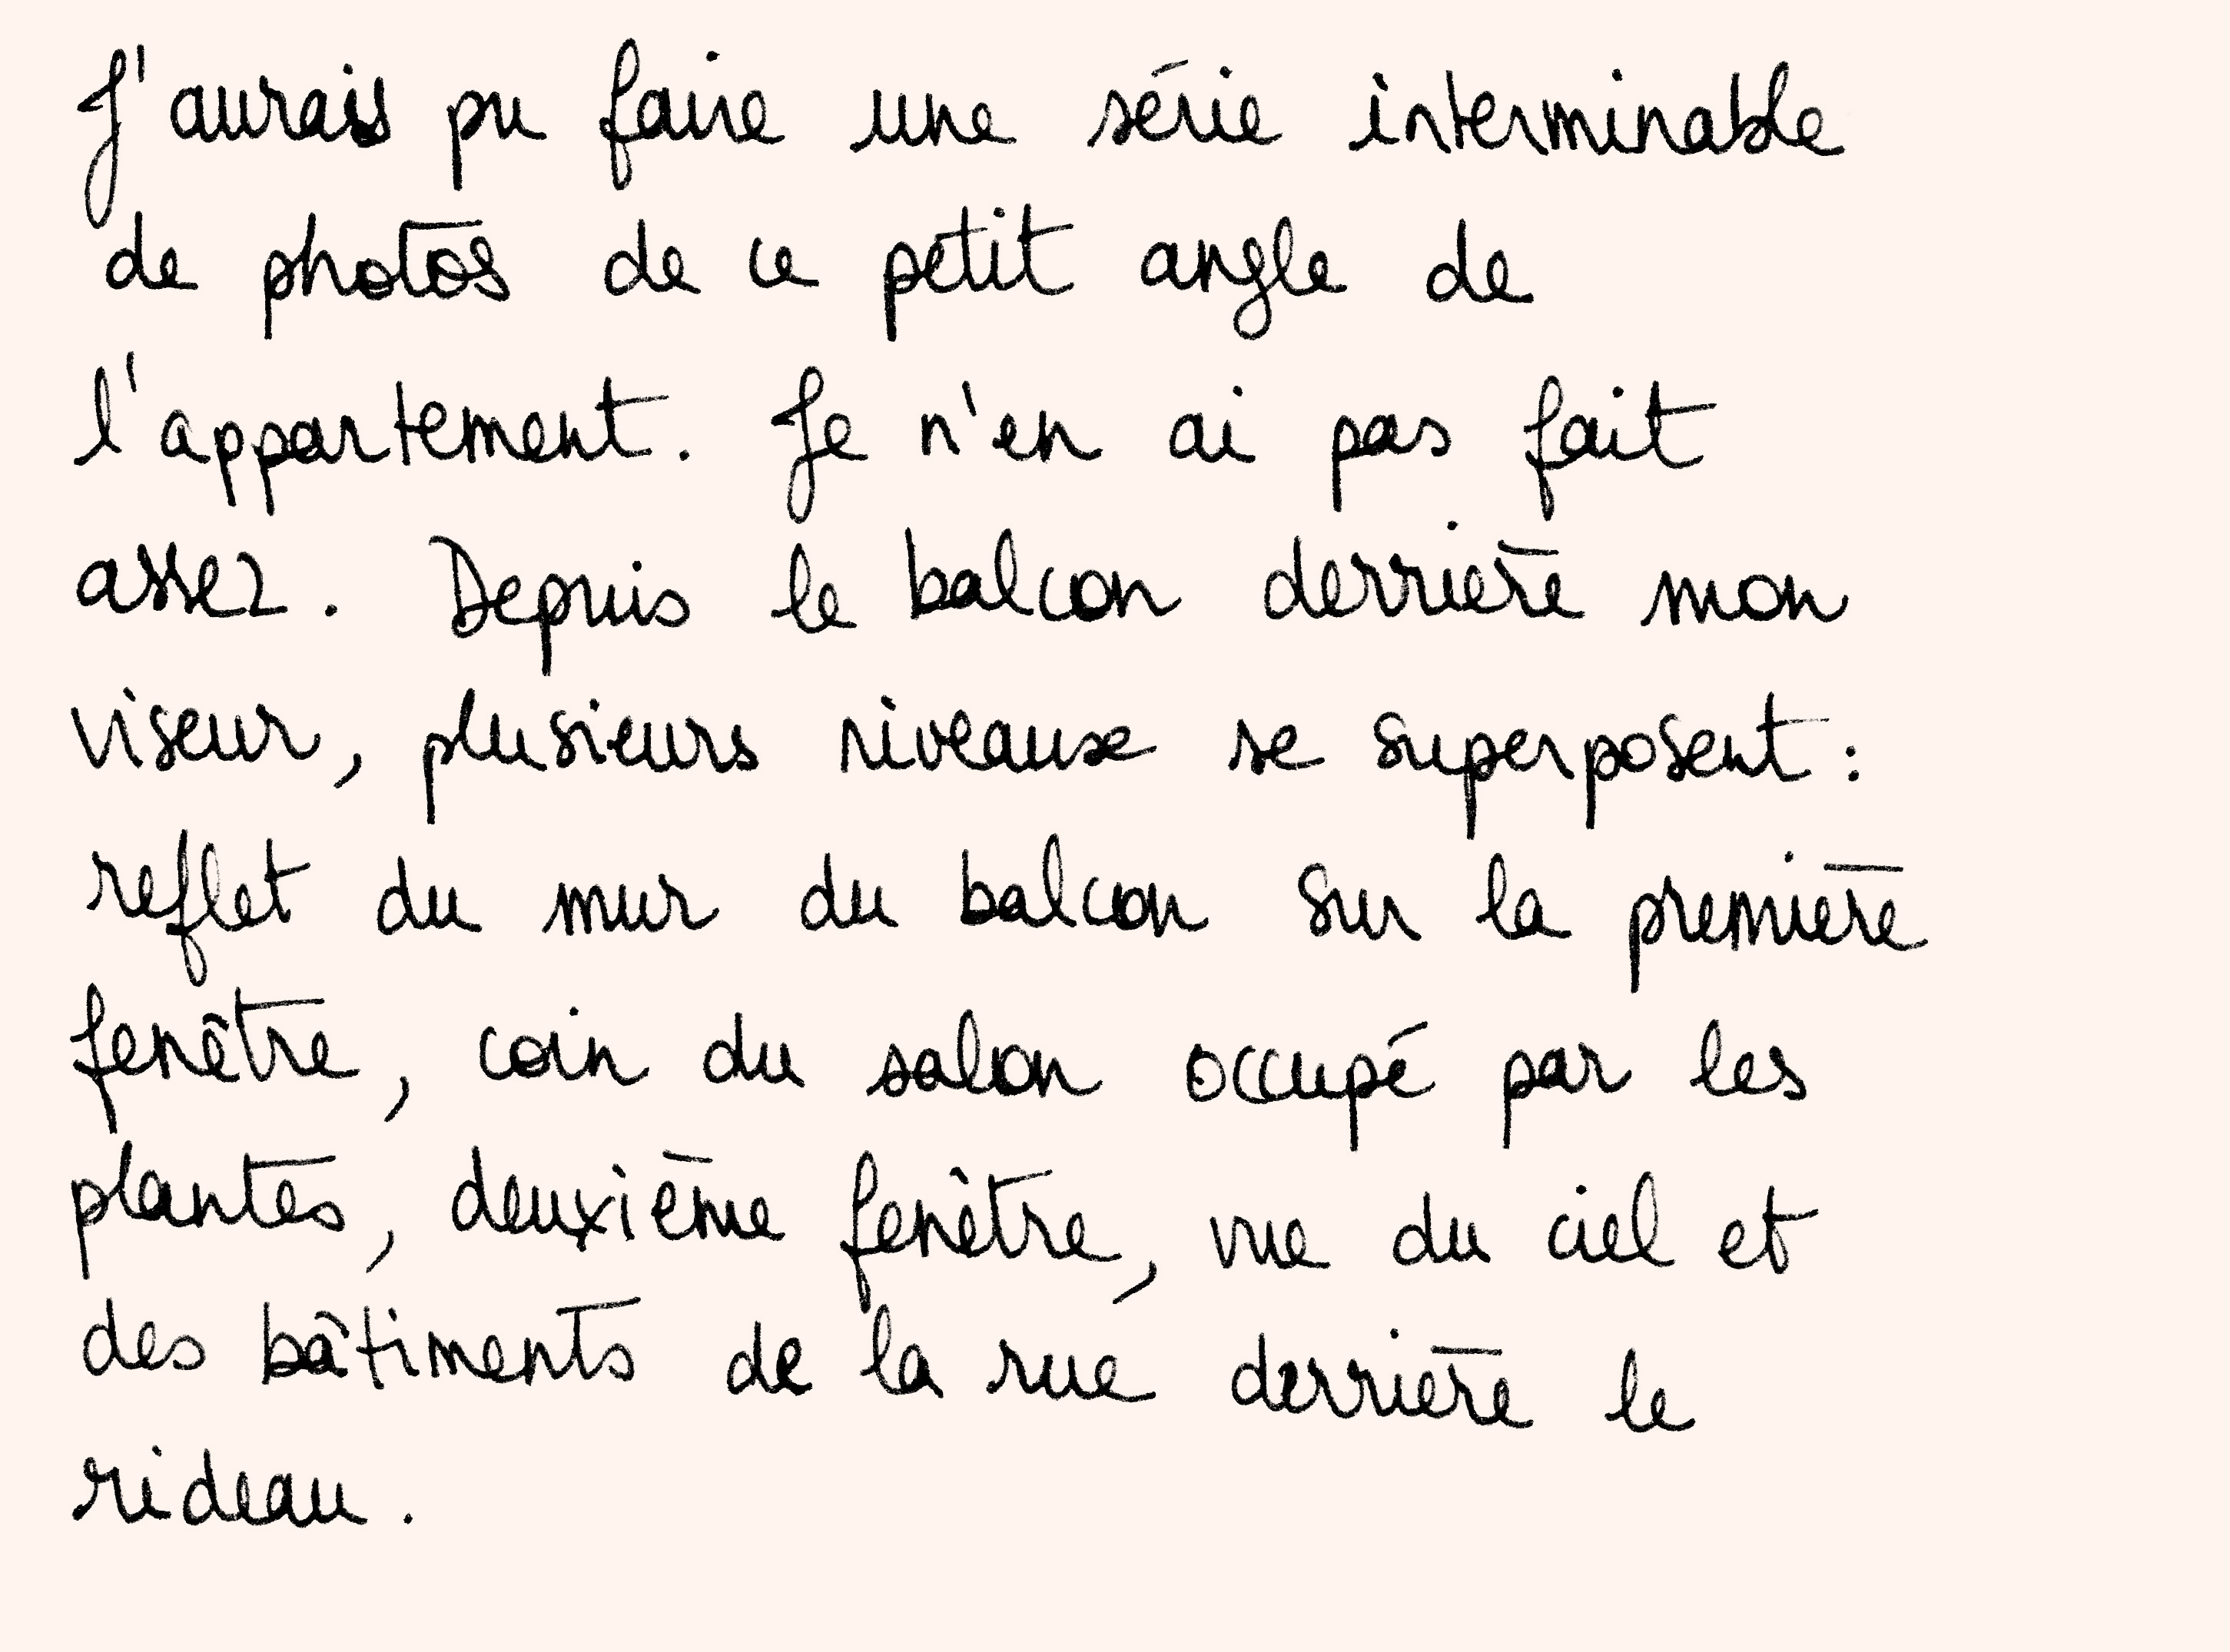 J'aurais pu faire une série interminable
de photos de ce petit angle de
l'appartement. Je n'en ai pas fait
assez. Depuis le balcon derrière mon
viseur, plusieurs niveaux se superposent :
reflet du mur du balcon sur la première
fenêtre, coin du salon occupé par les
plantes, deuxième fenêtre, vue du ciel et
des bâtiments de la rue derrière le
rideau.